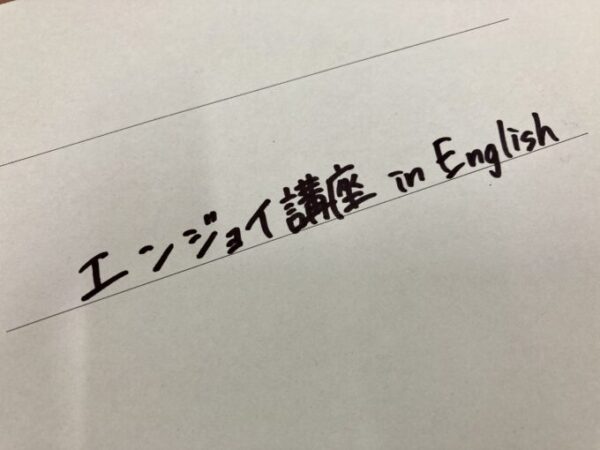 エンジョイ講座 in English